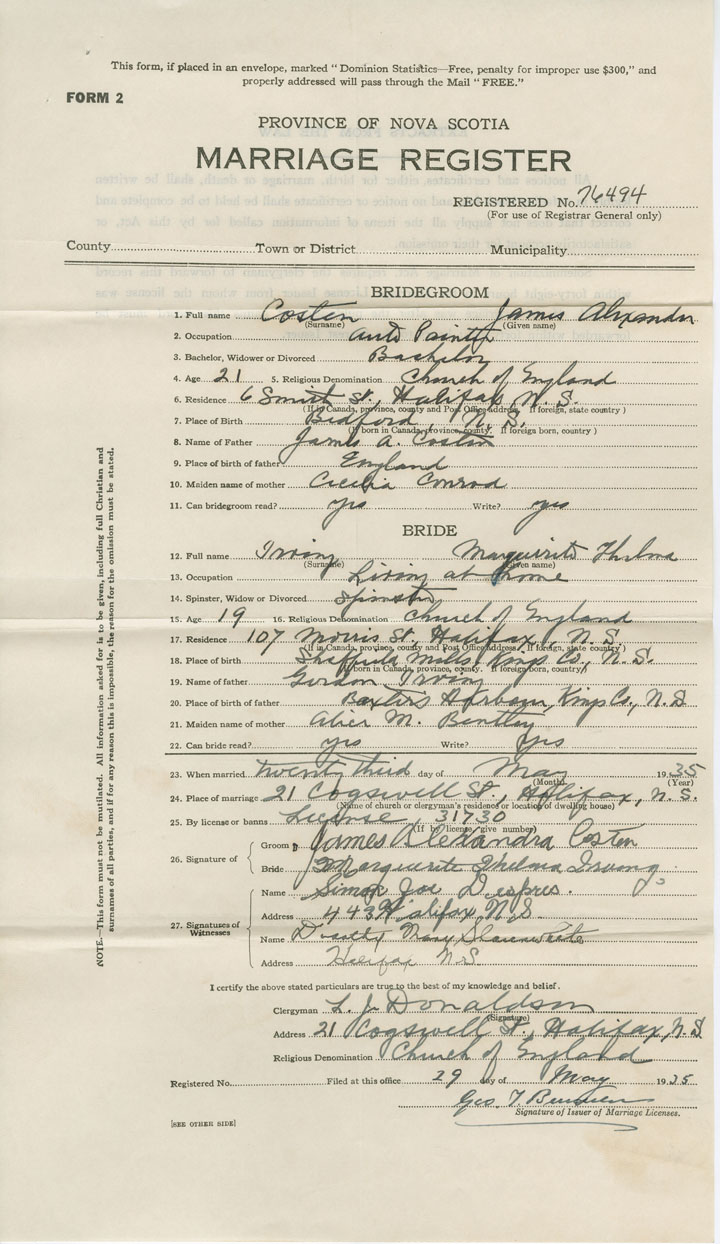 This form, if placed in an envelope, marked "Dominion Statistics—Free, penalty for improper use $300," and
properly addressed will pass through the Mail "FREE."
FORM 2
PROVINCE OF NOVA SCOTIA
MARRIAGE REGISTER
REGISTERED No. 76494
(For use of Registrar General only)
County Town or District Municipality
BRIDEGROOM
1. Full name Costen James Alexander
(Surname) (Given name)
2. Occupation Auto Painter
3. Bachelor, Widower or Divorced Bachelor
4. Age 21 5. Religious Denomination Church of England
6. Residence 6 Smith St., Halifax, N. S.
(If in Canada, province, county and Post Office address. If foreign, state country)
7. Place of Birth Bedford, N. S.
(If born in Canada, province, county. If foreign born, country)
8. Name of Father James A. Costen
9. Place of birth of father England
10. Maiden name of mother Cecilia Conrod
11. Can bridegroom read? yes Write? yes
BRIDE
12. Full name Irving Marguerite Thelma
(Surname) (Given name)
13. Occupation Living at home
14. Spinster, Widow or Divorced Spinster
15. Age 19 16. Religious Denomination Church of England
17. Residence 107 Morris St., Halifax, N. S.
(If in Canada, province, county and Post Office address. If foreign, state country)
18. Place of birth Sheffield Mills Kings Co., N. S.
(If born in Canada, province, county. If foreign born, country)
19. Name of father Gordon Irving
20. Place of birth of father Baxters Harbour, Kings Co., N. S.
21. Maiden name of mother Alice M. Bentley
22. Can bride read? yes Write? Yes
23. When married twenty third day of May 1935
(Month) (Year)
24. Place of marriage 21 Cogswell St., Halifax, N. S.
(Name of church or clergyman's residence or location of dwelling house)
25. By license or banns License, 31730
(If by license, give number)
26. Signature of
Groom James Alexandra Costen
Bride Marguerite Thelma Irving
27. Signatures of Witnesses
Name Simon Joe Despres.
Address 443 Halifax, N.S.
Name Mary
Address Halifax N.S.
I certify the above stated particulars are true to the best of my knowledge and belief.
Clergyman L. J. Donaldson
(Signature)
Address 21 Cogswell St., Halifax, N. S.
Religious Denomination Church of England
Registered No. Filed at this office 29 day of May 1935
Geo. T.
Signature of Issuer of Marriage Licenses.
[SEE OTHER SIDE]
NOTE.—This form must not be mutilated. All information asked for is to be given, including full Christian and
surnames of all parties, and if for any reason this is impossible, the reason for the omission must be stated.